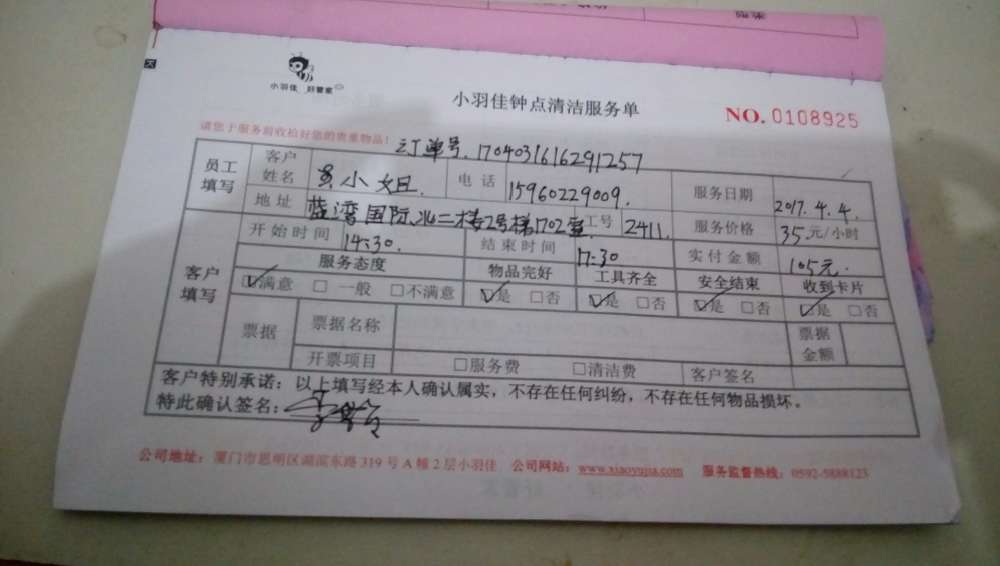 小羽佳 好管家
小羽佳钟点清洁服务单
NO. 0108925
请您于服务前收拾好您的贵重物品!
订单号.1704031616291257
员工填写 客户姓名 小姐. 电话 15960229009. 服务日期 2017.4.4.
地址 蓝湾国际.北二楼2号梯1702室 工号 2411. 服务价格 35元/小时
开始时间 14:30. 结束时间 17:30 实付金额 105元.
客户填写 服务态度 物品完好 工具齐全 安全结束 收到卡片
☑满意 □一般 □不满意 ☑是 □否 ☑是 □否 ☑是 □否 ☑是 □否
票据 票据名称 票据金额
开票项目 □服务费 □清洁费 客户签名
客户特别承诺:以上填写经本人确认属实,不存在任何纠纷,不存在任何物品损坏。
特此确认签名:
公司地址:厦门市思明区湖滨东路319号A幢2层小羽佳 公司网站:www.xiaoyujia.com 服务监督热线:0592-5888123